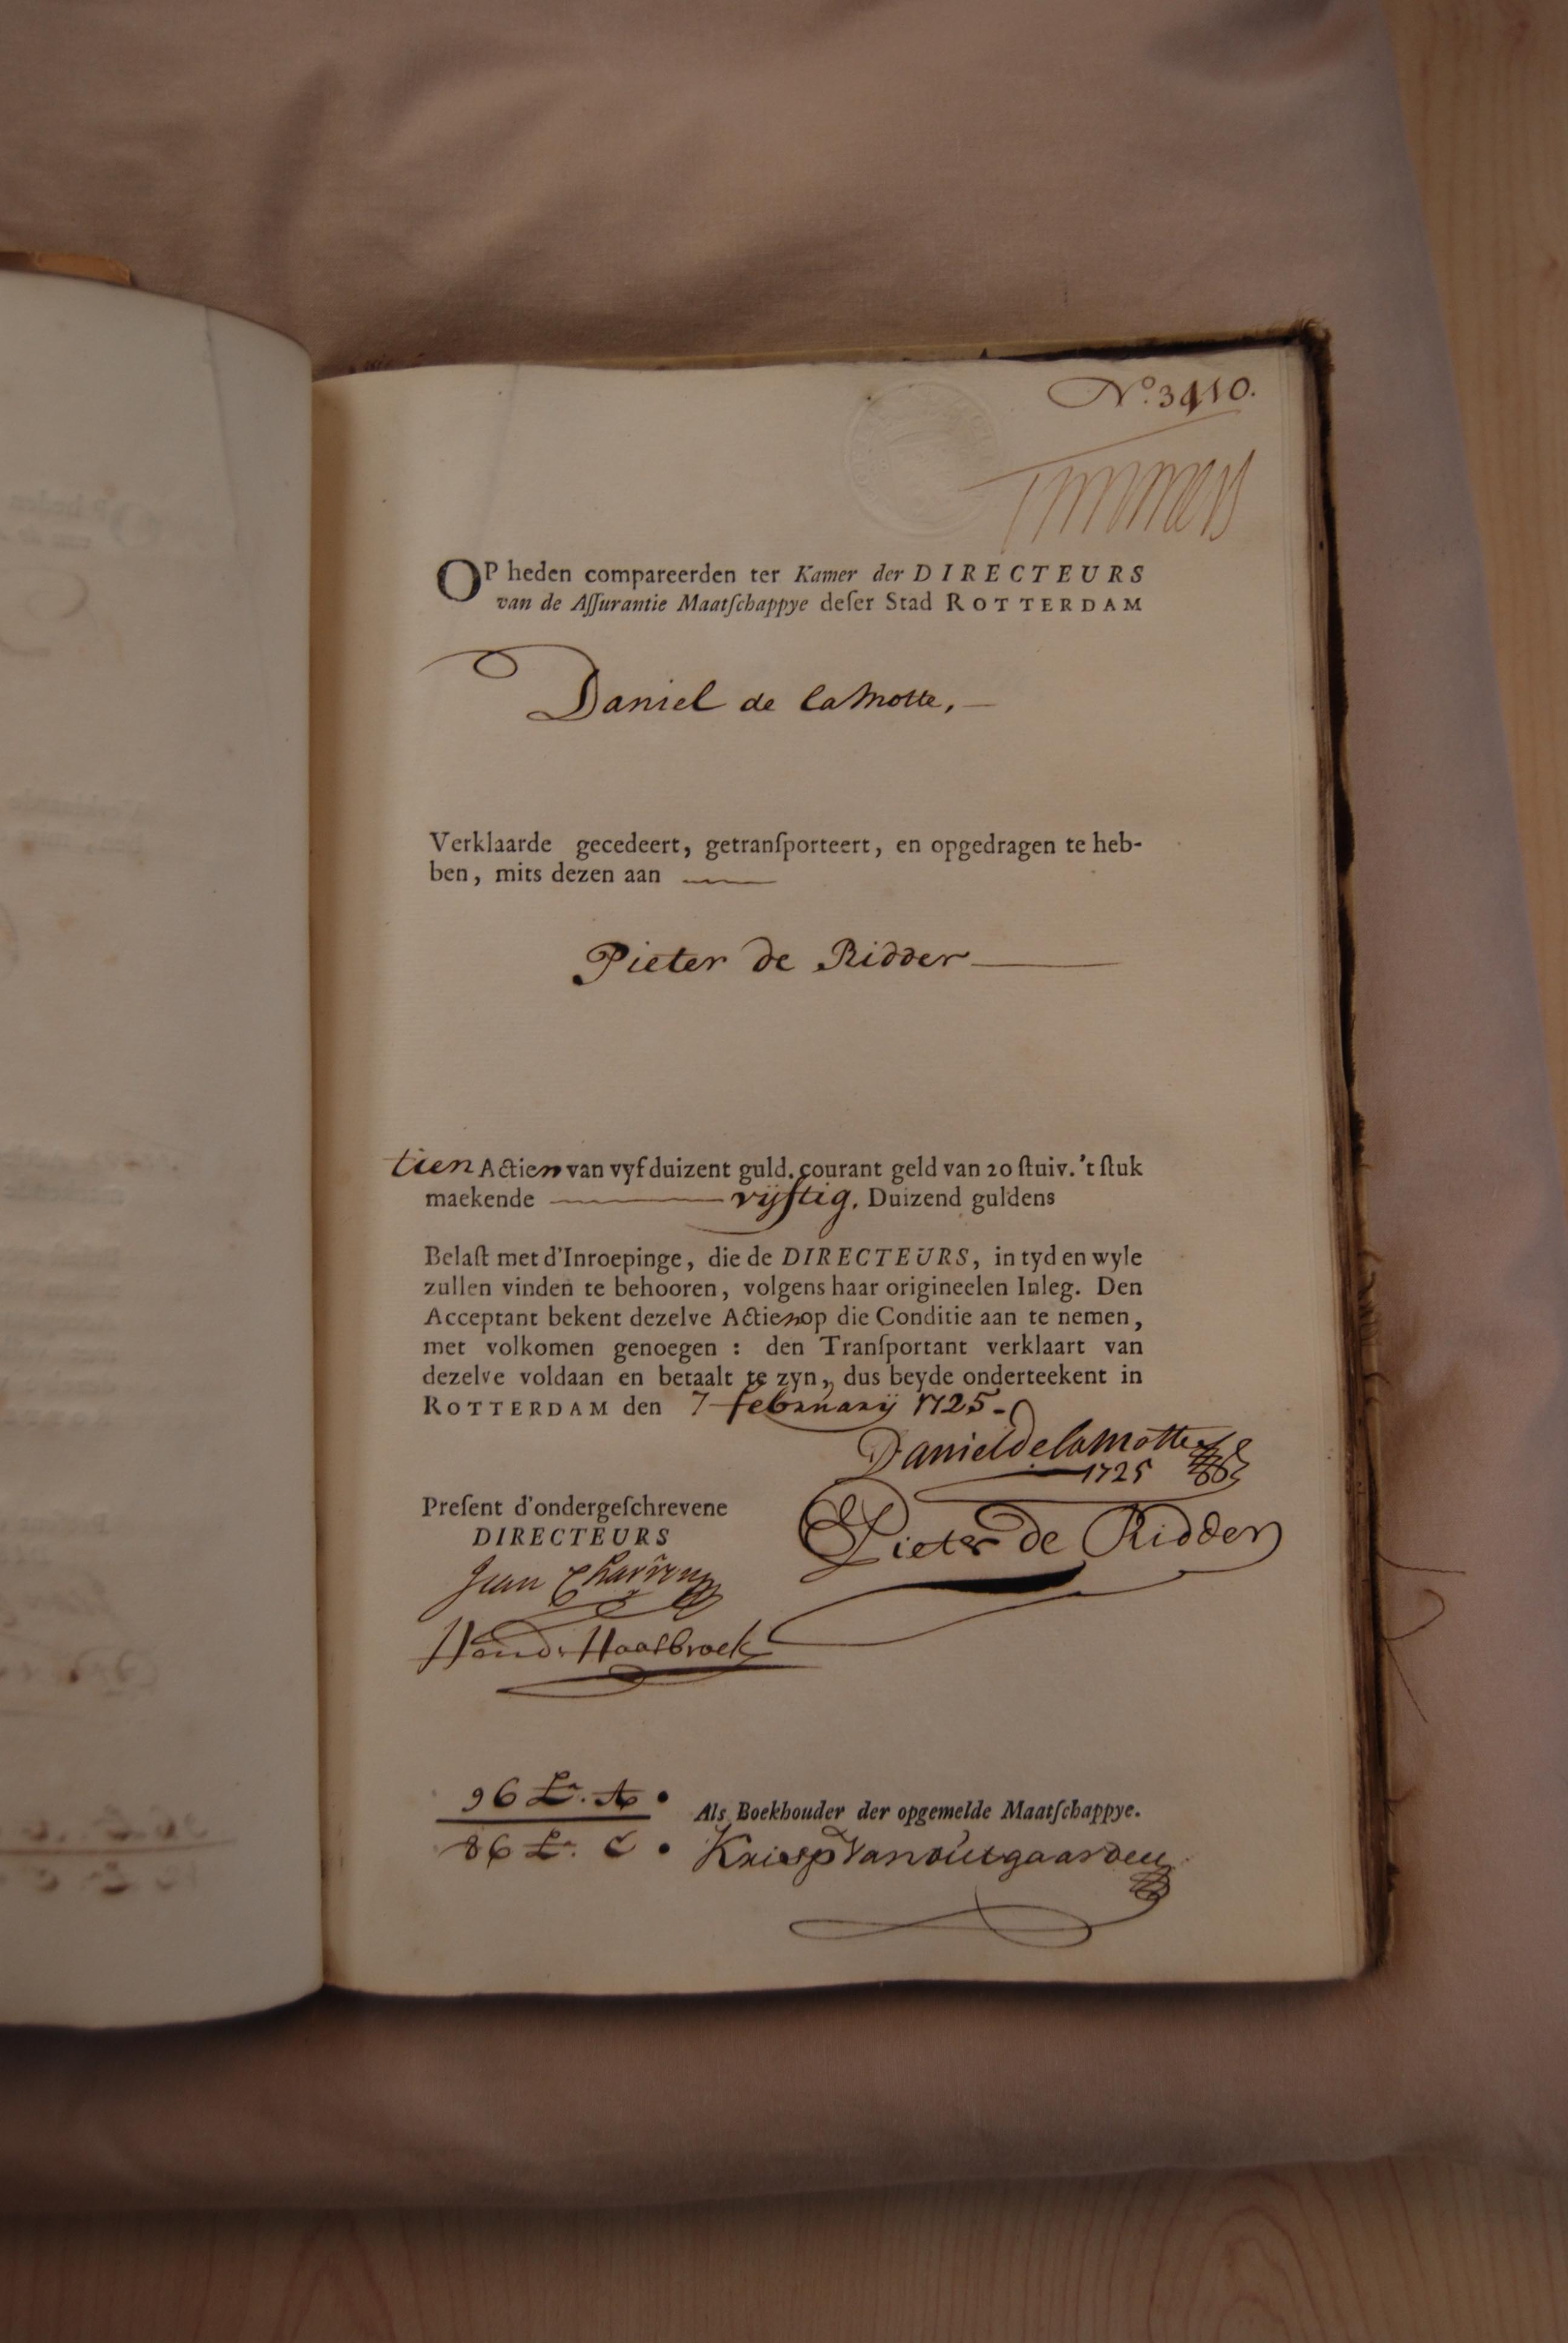 No. 3410.
Timmers
OP heden compareerden ter Kamer der DIRECTEURS
van de Aſſurantie Maatſchappye deſer Stad ROTTERDAM
Daniel de la Motte,
Verklaarde gecedeert, getranſporteert, en opgedragen te heb-
ben, mits dezen aan
Pieter de Ridder
tien Actien van vyf duizent guld. courant geld van 20 ſtuiv. 't ſtuk
maekende vijftig, Duizend guldens
Belaſt met d'Inroepinge, die de DIRECTEURS, in tyd en wyle
zullen vinden te behooren, volgens haar origineelen Inleg. Den
Acceptant bekent dezelve Actien op die Conditie aan te nemen,
met volkomen genoegen : den Tranſportant verklaart van
dezelve voldaan en betaalt te zyn, dus beyde onderteekent in
ROTTERDAM den 7 february 1725.
Daniel de la Motte
1725
Pieter de Ridder
Preſent d'ondergeſchrevene
DIRECTEURS
Jean
Haasbroek
96 La. A
86 La. C
Als Boekhouder der opgemelde Maatſchappye.
Kriesp Van outgaarden